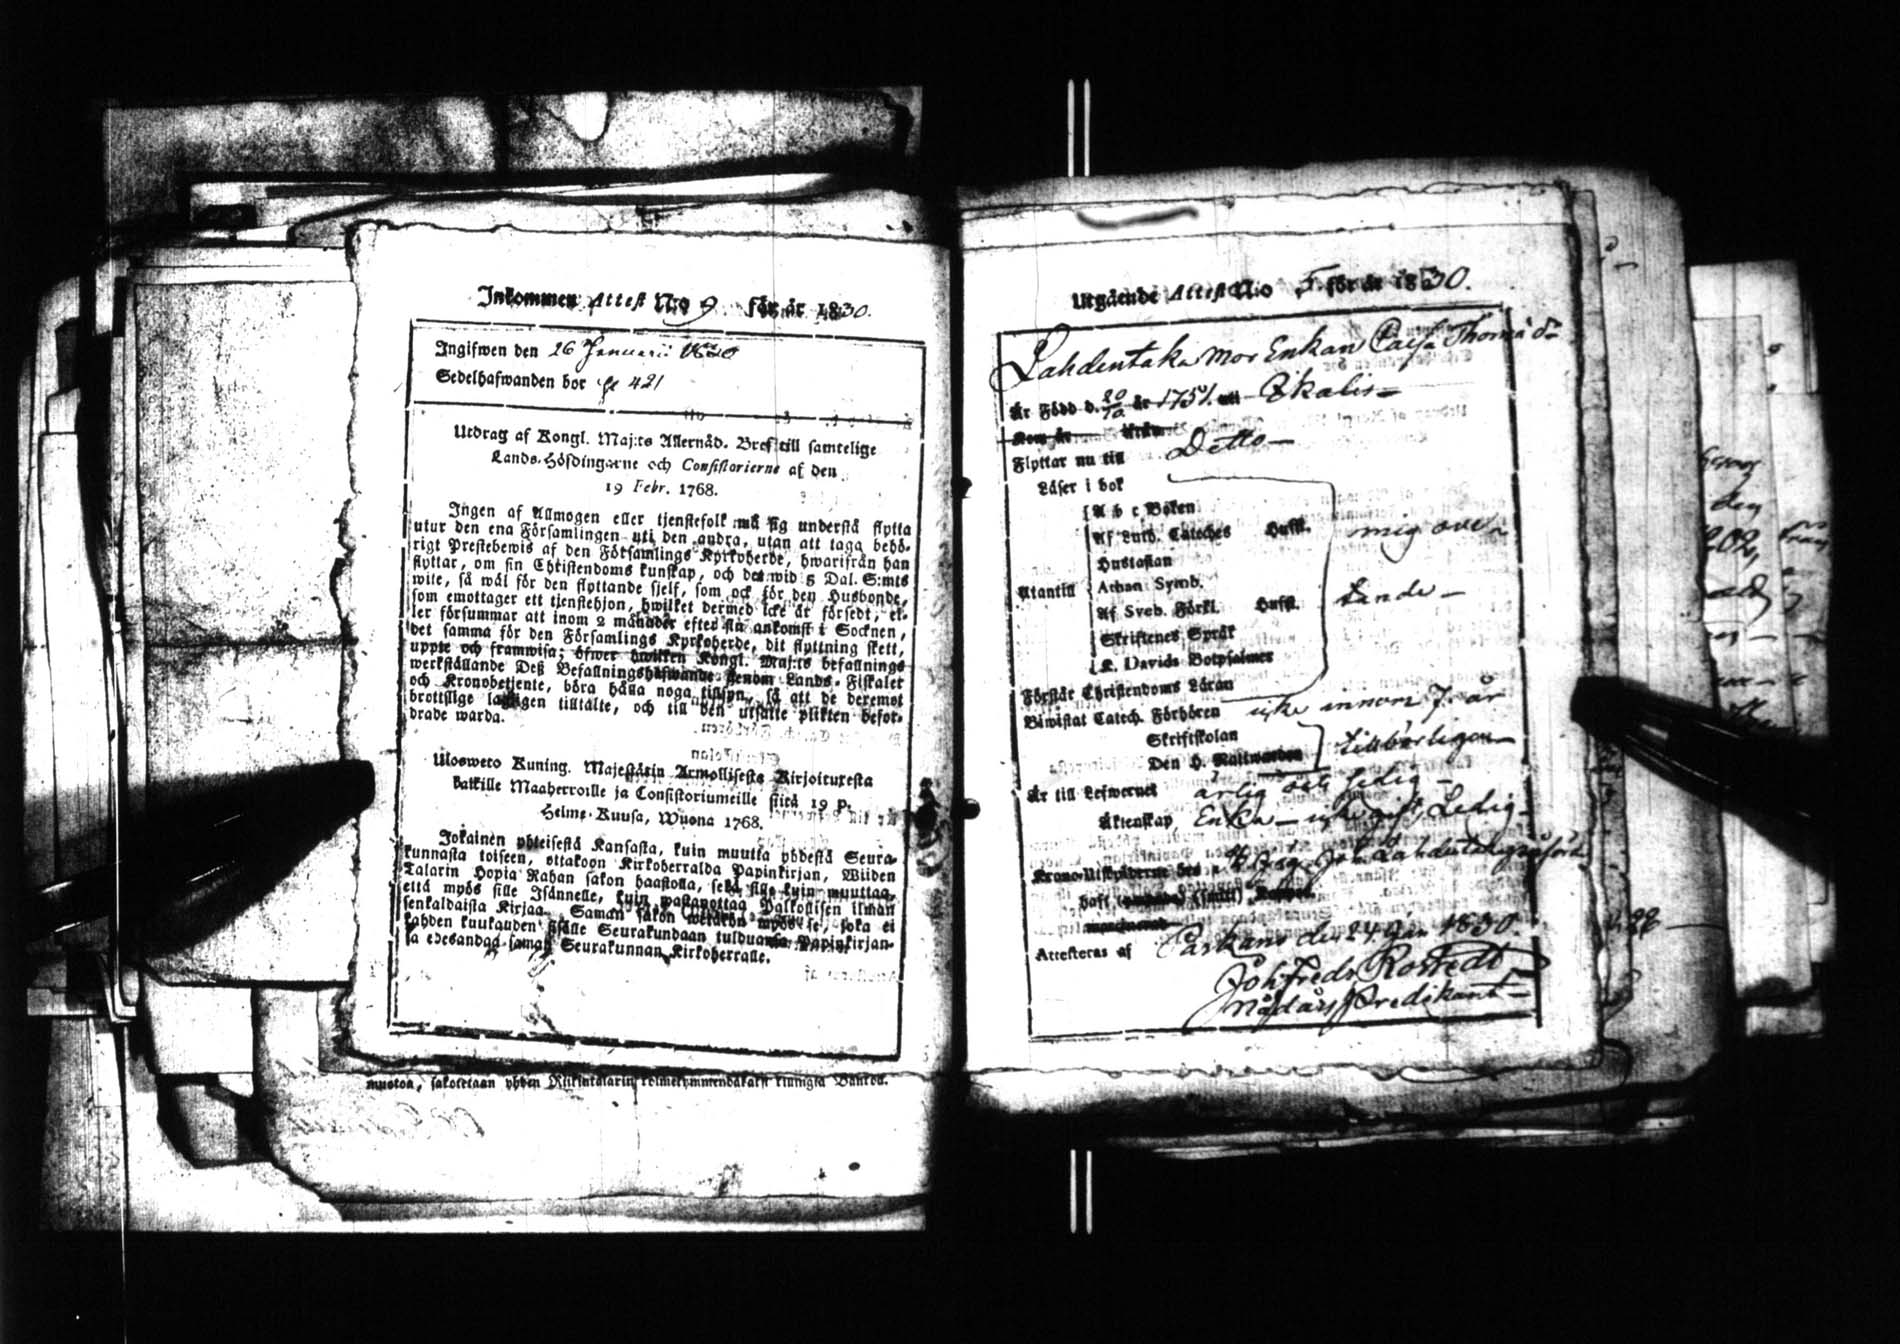 Inkommen Attest N:o 9 för år 1830.
Ingifwen den 26 Januarii 1830
Sedelhafwanden bor 421
Utdrag af Kongl. Maj:ts Allernåd. Bref till samtelige
Lands-Höfdingarne och Consistorierne af den
19 Febr. 1768.
Ingen af Allmogen eller tjenstefolk må sig understå flytta
utur den ena Församlingen uti den andra, utan att taga behö-
rigt Prestebewis af den Församlings Kyrkoherde, hwarifrån han
flyttar, om sin Christendoms kunskap, och det wid 5 Dal. S:mts
wite, så wäl för den flyttande sjelf, som ock för den Husbonde,
som emottager ett tjenstehjon, hwilket dermed icke är försedt, el-
ler försummar att inom 2 månader efter sin ankomst i Socknen,
det samma för den Församlings Kyrkoherde, dit flyttning skett,
uppte och framwisa; öfwer hwilken Kongl. Maj:ts befallnings
werkställande Deß Befallningshafwande genom Lands-Fiskaler
och Kronobetjente, böra hålla noga tillsyn, så att de deremot
brottslige lagligen tilltalte, och till den utsatte plikten befor-
drade warda.
Ulosweto Kuning. Majestätin Armollisesta Kirjoituresta
kaikille Maaherroille ja Consistoriumeille siitä 19 p.
Helme-Kuusa, Wuona 1768.
Jokainen yhteisestä Kansasta, kuin muutta yhdestä Seura-
kunnasta toiseen, ottakoon Kirkoherralda Papinkirjan, Wiiden
Talarin Hopia Rahan sakon haastolla, sekä sille kuin muuttaa,
että myös sille Isännelle, kuin wastanottaa Palkollisen ilman
senkaldaista Kirjaa. Saman sakon wetäkön myös se, joka ei
kahden kuukauden sisälle Seurakundaan tulduansa Papinkirjan-
sa edesandaa saman Seurakunnan Kirkoherralle.
muotoa, sakotetaan yhden Riikintalarin kolmekymmendäkaksi killingiä Bankoa.
Utgående Attest N:o 5 för år 1830.
Lahdentaka mor Enkan Caisa Thomæ dr
Är Född d. 20/10 år 1751. uti Ikalis
Flyttar nu till Detto
Läser i bok
A b c Boken
Af Luth. Cateches Hufst.
Hustaflan
Utantill Athan. Symb.
Af Sveb. Förkl. Hufst.
Skriftenes Språk
K. Davids Botpsalmer
mig ove
kande
Förstår Christendoms Läran
Biwistat Catech. Förhören icke innom 7. år
Skriftskolan
Den H. Nattwarden tillbörligen
Är till Lefwernet ärlig och ledig
Äktenskap Enka icke gift, Ledig
Attesteras af Parkano den 24 Jan 1830.
Joh Fredr Rostedt
Predikant